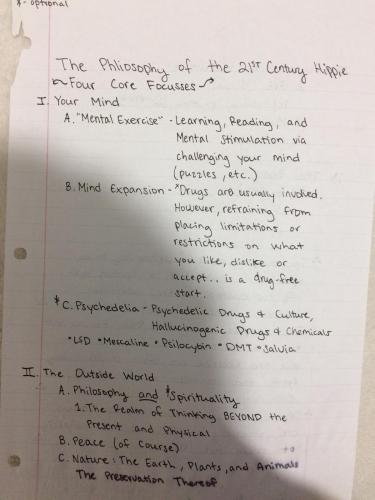 * - optional
The Phliosophy of the 21st Century Hippie
~Four Core Focusses~
I. Your Mind
A. "Mental Exercise" - Learning, Reading, and
Mental Stimulation via
challenging your mind
(puzzles, etc.)
B. Mind Expansion - *Drugs are usually involved.
However, refraining from
placing limitations or
restrictions on what
you like, dislike or
accept.. is a drug-free
start.
*C. Psychedelia - Psychedelic Drugs & Culture,
Hallucinogenic Drugs & Chemicals
•LSD •Mescaline •Psilocybin •DMT •Salvia
II. The Outside World
A. Philosophy and *Spirituality
1. The Realm of Thinking BEYOND the
Present and Physical
B. Peace (of Course)
C. Nature: The Earth, Plants, and Animals
The Preservation Thereof